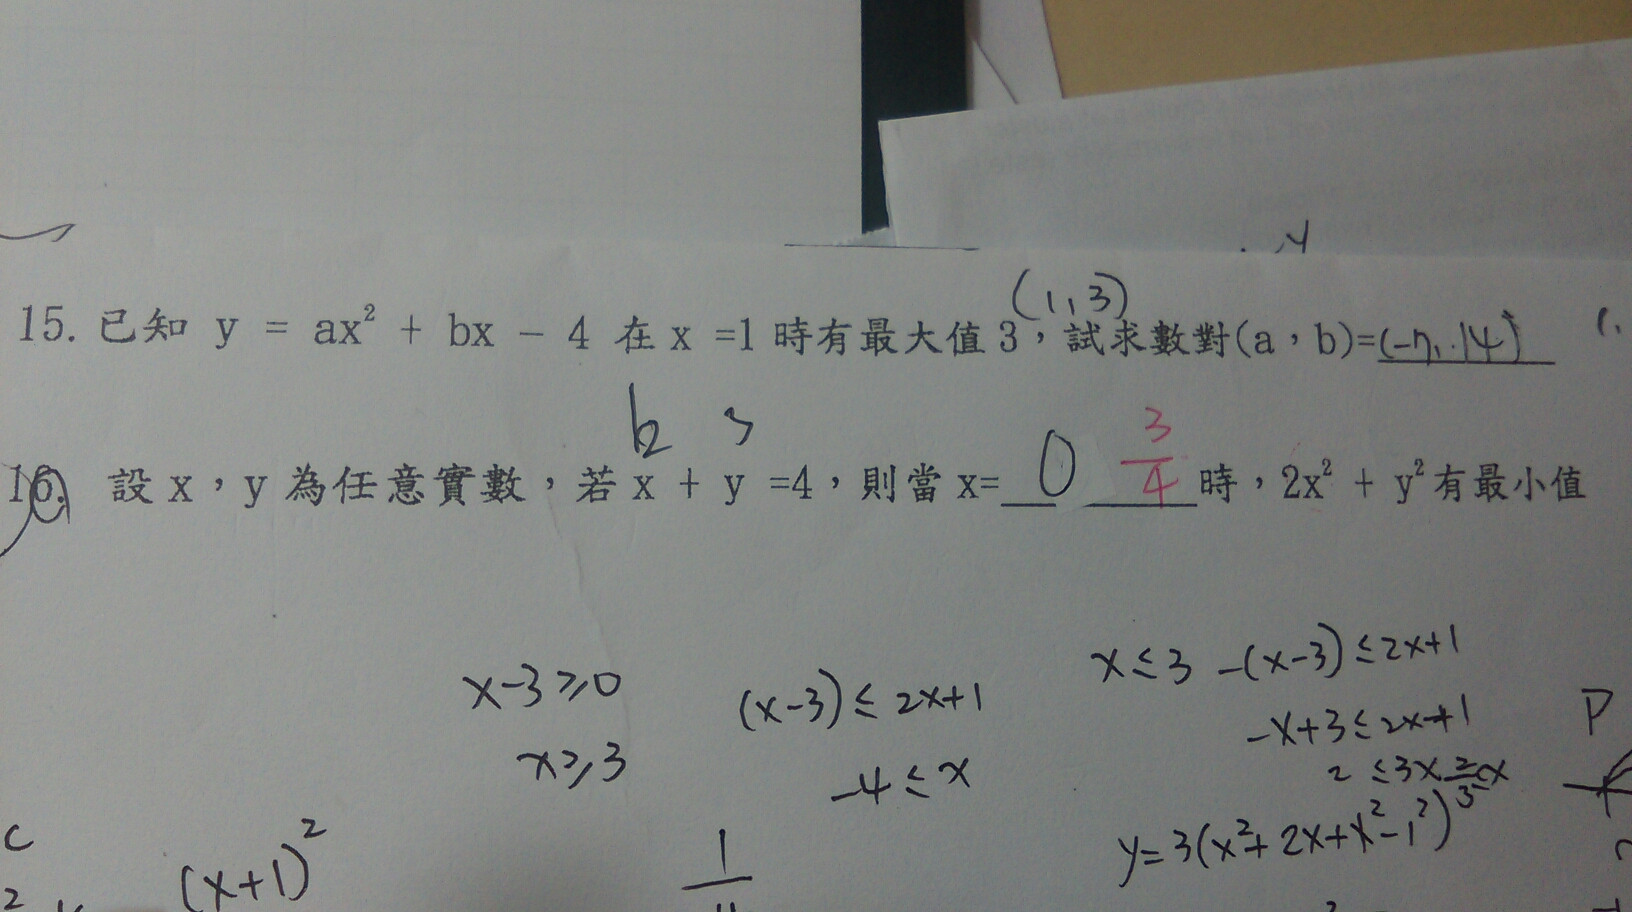 (1,3)
15. 已知 y = ax² + bx − 4 在 x =1 時有最大值 3，試求數對(a，b)=(-7, 14)
3
3/4
16. 設 x，y 為任意實數，若 x + y =4，則當 x= 0 時，2x² + y² 有最小值
x-3≥0 (x-3)≤2x+1 x≤3 -(x-3)≤2x+1
-x+3≤2x+1 P
x≥3 -4≤x 2≤3x 2/3≤x
(x+1)² 1 y=3(x²+2x+x²-1²)